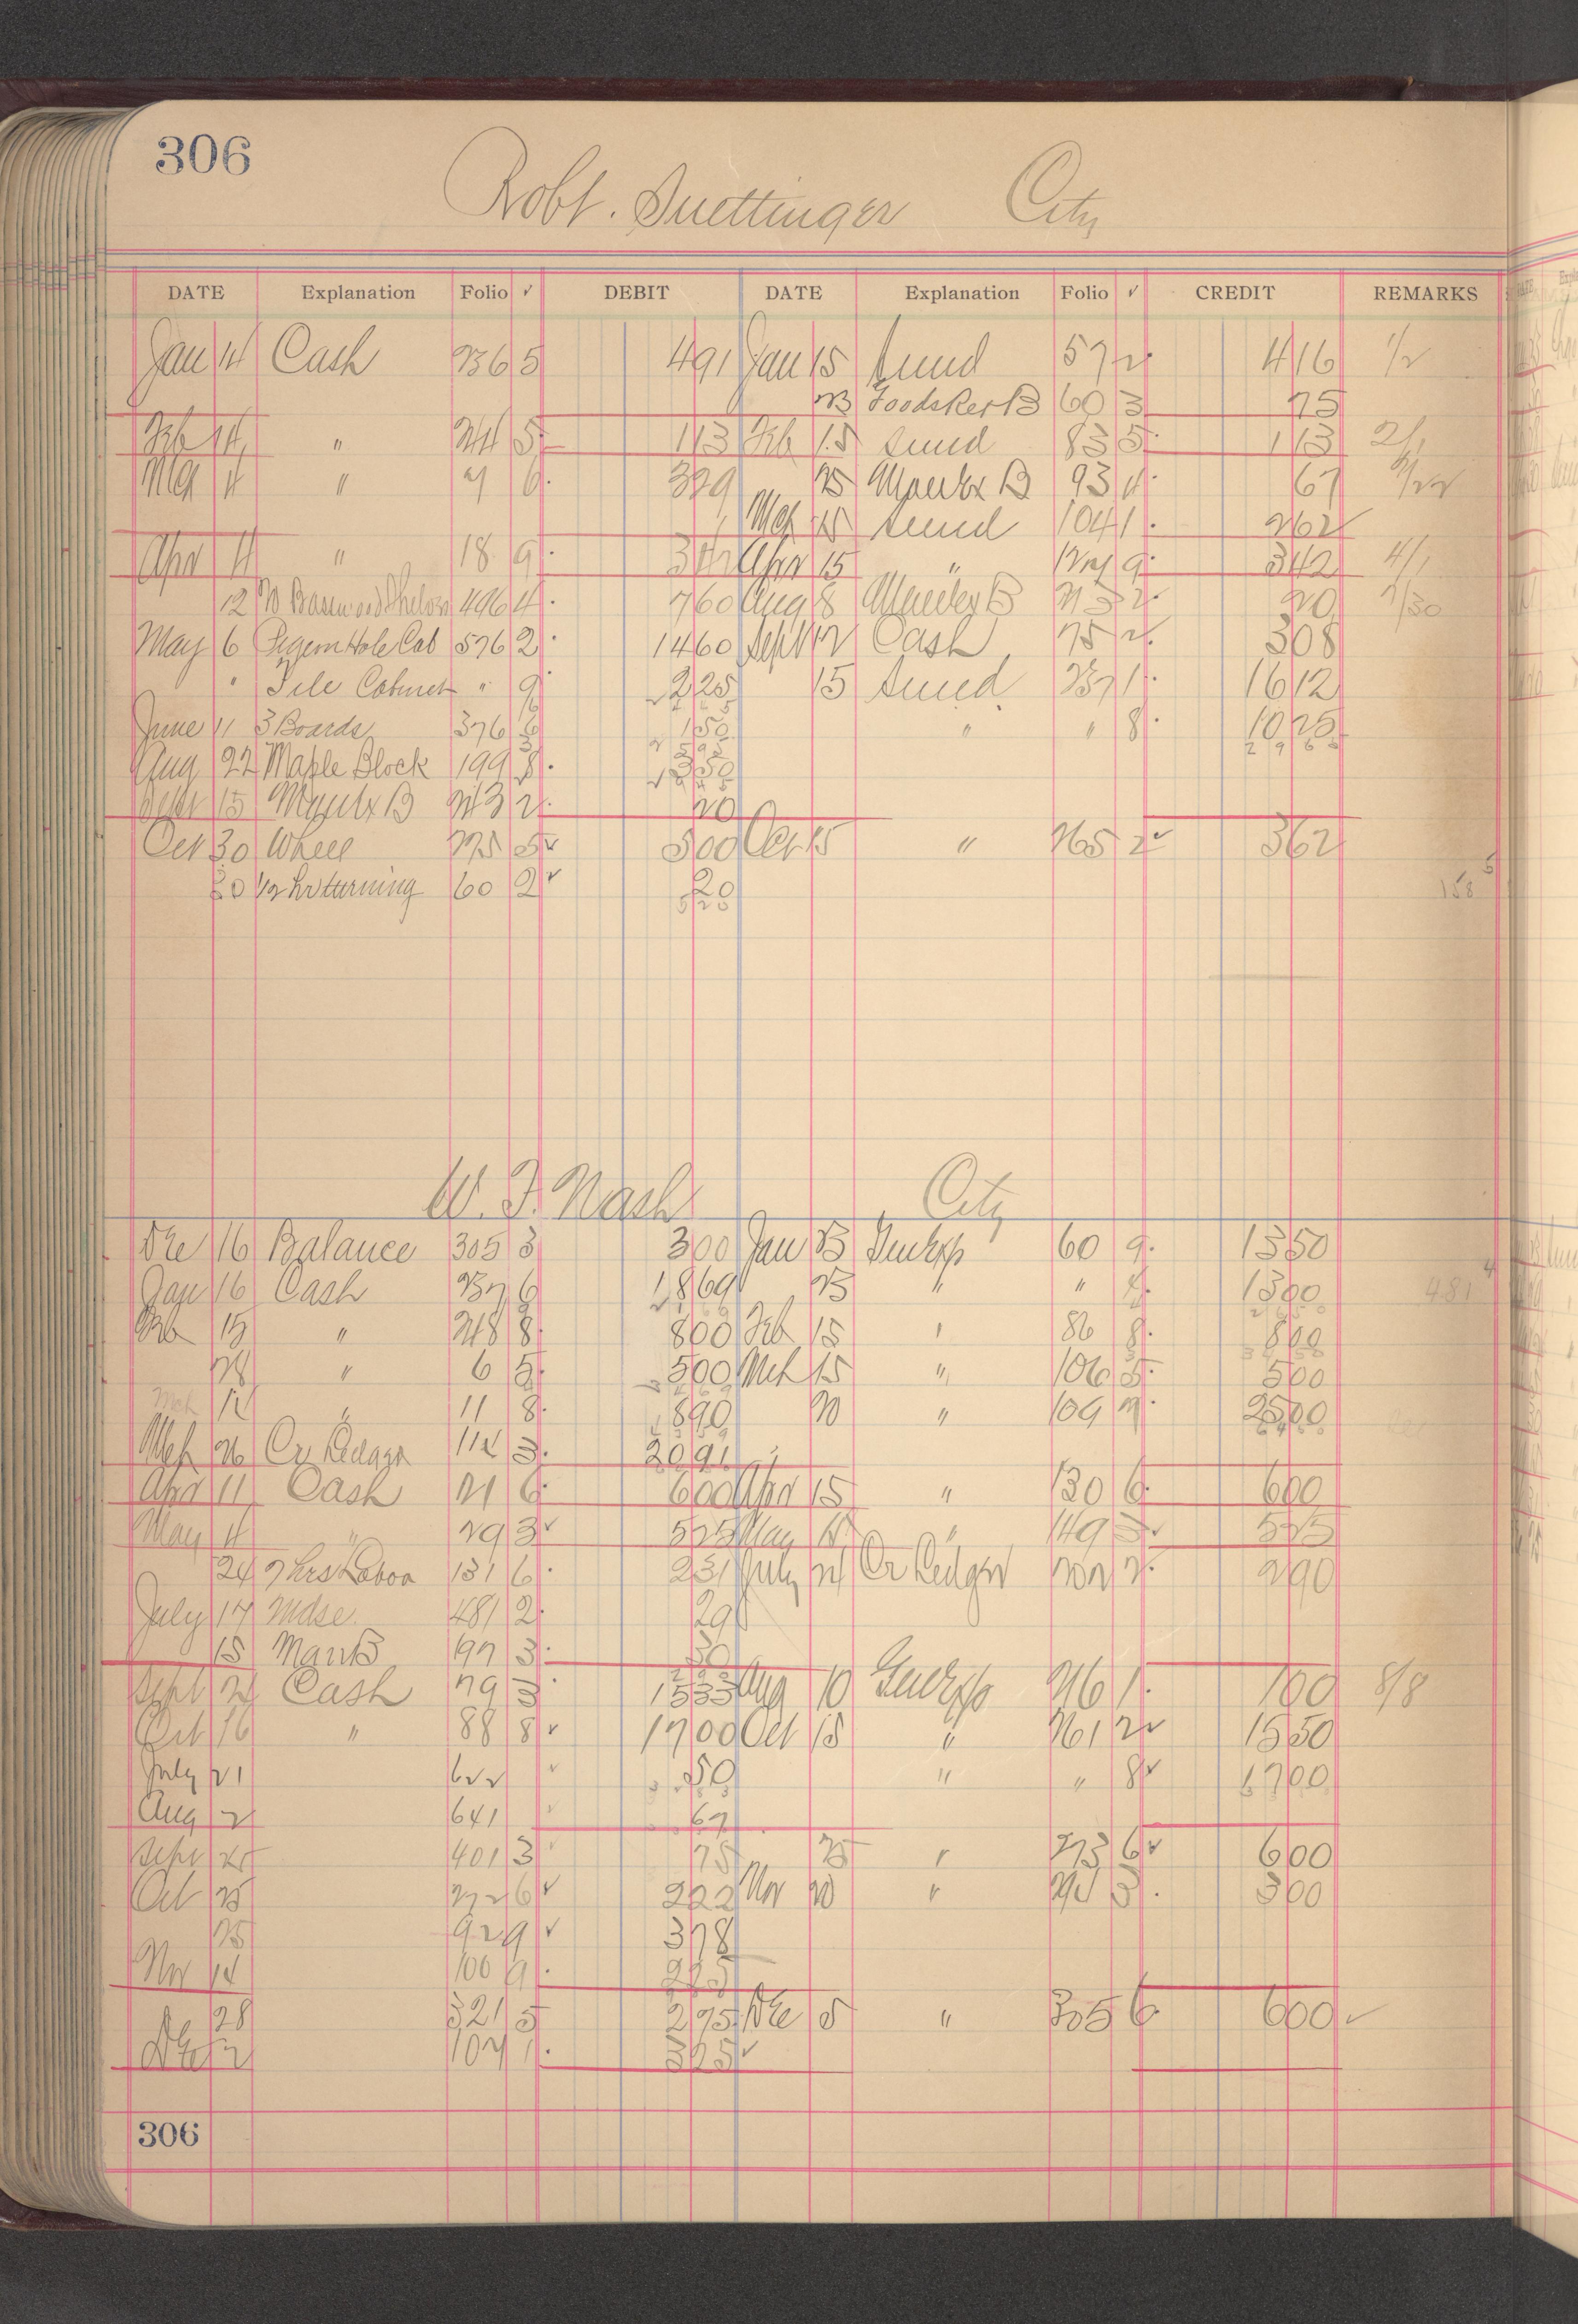 306
Robt. Suettinger City
DATE Explanation Folio ✓ DEBIT DATE Explanation Folio ✓ CREDIT REMARKS
Jan 14 Cash 236 5 4 91 Jan 15 Sund 57 2 4 16 1/2
23 Goods Ret B 60 3 75
Feb 14 " 244 5 1 13 Feb 15 Sund 83 5 1 13 2/1
4 " 7 6 3 29 25 93 4 67
Mch 15 Sund 104 1 2 62
Apr 4 " 18 9 3 42 Apr 15 " 9 3 42 4/1
12 20 Basswood 496 4 7 60 Aug 8 2 20 7/30
May 6 Pigeon Hole Cab 576 2 14 60 Sept 12 Cash 75 2 3 08
" File Cabinet " 9 2 25 15 Sund 237 1 16 12
June 11 3 Boards 376 6 1 50 " " 8 10 25
Aug 22 Maple Block 199 8 3 50
Sept 15 243 2 20
Oct 30 Wheel 225 5 5 00 Oct 15 " 265 2 3 62
30 1/2 hr turning 60 2 20
5 20
158
W. F. Nash City
Dec 16 Balance 305 3 3 00 Jan 23 60 9 13 50
Jan 16 Cash 237 6 18 69 23 " " 13 00
481
Feb 15 " 248 8 8 00 Feb 15 " 86 8 8 00
28 " 6 5 5 00 Mch 15 " 106 5 5 00
Mch 12 " 11 8 8 90 20 " 109 25 00
Mch 26 Cr Ledger 114 3 20 91
Apr 11 Cash 21 6 6 00 Apr 15 " 130 6 6 00
May 4 " 29 3 5 25 May " 149 3 5 25
24 7 hrs Labor 131 6 2 31 July 21 Cr Ledger 202 2 2 90
July 17 Mdse. 481 2 29
15 97 3 30
Sept 2 Cash 79 3 15 33 Aug 10 216 1 1 00 8/8
Oct 16 " 88 8 17 00 Oct 15 " 261 2 15 50
July 21 622 50 " " 8 17 00
Aug 2 641 67
Sept 25 401 3 75 25 " 273 6 6 00
Oct 25 272 6 2 22 Nov 20 " 3 3 00
25 92 9 3 78
Nov 14 100 9 2 25
28 321 5 2 75 Dec 5 " 305 6 6 00
Dec 2 107 1 3 25
306